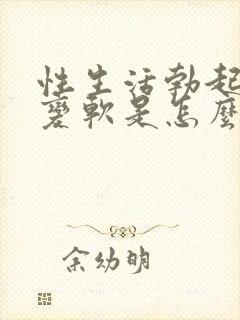 性生活勃起
变软是怎么
余幼明